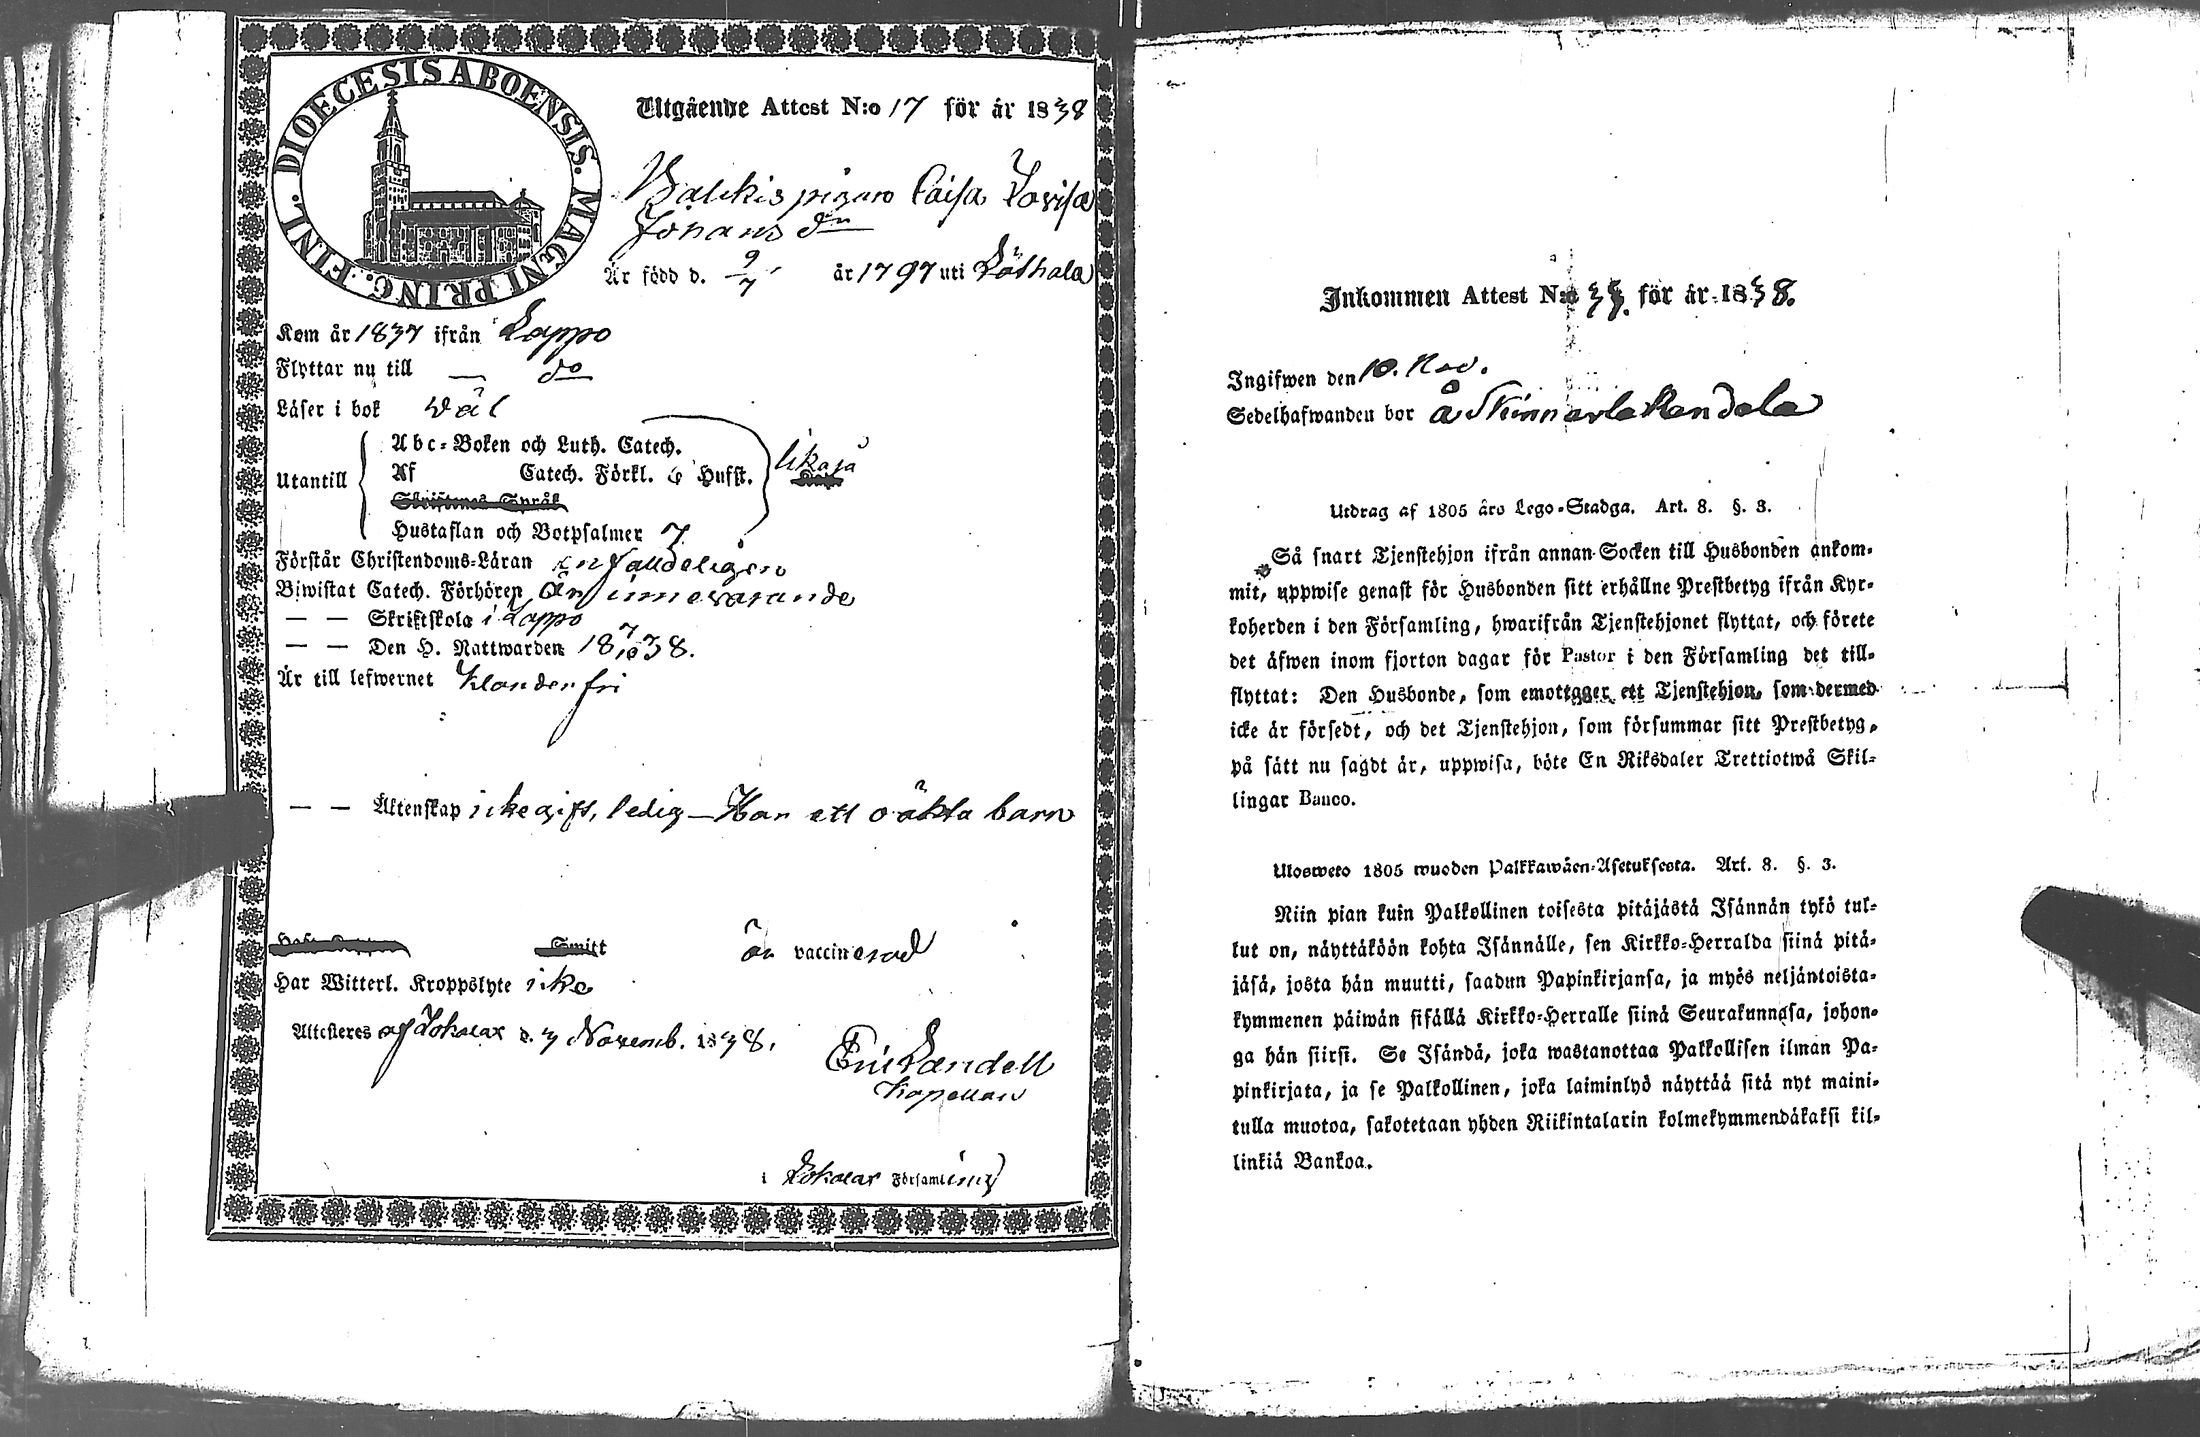 DIOECESIS ABOENSIS. MAGNI PRINC. FINL.
Utgående Attest N:o 17 för år 1838
pigan Caisa Lovisa
Johans dr
Är född d. 9/7 år 1797 uti Löthala
Kom år 1837 ifrån Lappo
Flyttar nu till — do
Läser i bok väl
Utantill
Abc-Boken och Luth. Catech.
Af Catech. Förkl. 6 Hufst.
likaså
Skriftenes Språk
Hustaflan och Botpsalmer 7
Förstår Christendoms-Läran enfalldeligen
Biwistat Catech. Förhören
— — Skriftskola i Lappo
— — Den H. Nattwarden 18 7/10 38.
Är till lefwernet Klanderfri
— — Äktenskap icke gift, ledig — Har ett oäkta barn
Smitt är vaccinerad
Har Witterl. Kroppslyte icke
Attesteres af Lokalax d. 7 Novemb. 1838.
Eric Landell
Kapellan
i Lokalax Församling
Inkommen Attest N:o för år 1838.
Ingifwen den 10. Nov.
Sedelhafwanden bor å Skinnarla Randala
Utdrag af 1805 års Lego-Stadga. Art. 8. §. 3.
Så snart Tjenstehjon ifrån annan Socken till Husbonden ankom-
mit, uppwise genast för Husbonden sitt erhållne Prestbetyg ifrån Kyr-
koherden i den Församling, hwarifrån Tjenstehjonet flyttat, och förete
det äfwen inom fjorton dagar för Pastor i den Församling det till-
flyttat: Den Husbonde, som emottgger ett Tjenstehjon, som dermed
icke är försedt, och det Tjenstehjon, som försummar sitt Prestbetyg,
på sätt nu sagdt är, uppwisa, böte En Riksdaler Trettiotwå Skil-
lingar Banco.
Uloswete 1805 wuoden Palkkawäen-Asetuksesta. Art. 8. §. 3.
Niin pian kuin Palkollinen toisesta pitäjästä Isännän tykö tul-
lut on, näyttäköön kohta Isännälle, sen Kirkko-Herralda siinä pitä-
jäsä, josta hän muutti, saadun Papinkirjansa, ja myös neljäntoista-
kymmenen päiwän sisällä Kirkko-Herralle siinä Seurakunnasa, johon-
ga hän siirsi. Se Isändä, joka wastanottaa Palkollisen ilman Pa-
pinkirjata, ja se Palkollinen, joka laiminlyö näyttää sitä nyt maini-
tulla muotoa, sakotetaan yhden Riikintalarin kolmekymmendäkaksi kil-
linkiä Bankoa.